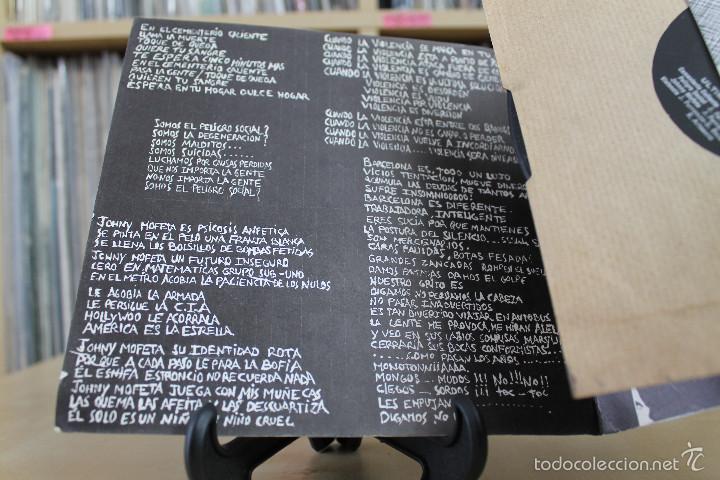 EN EL CEMENTERIO CALIENTE
LLAMA LA MUERTE
TOQUE DE QUEDA
QUIERE TU SANGRE
TE ESPERA CINCO MINUTOS MAS
EN EL CEMENTERIO CALIENTE
PASA LA GENTE / TOQUE DE QUEDA
QUIEREN TU SANGRE
ESPERA EN TU HOGAR DULCE HOGAR
SOMOS EL PELIGRO SOCIAL?
SOMOS LA DEGENERACION?
SOMOS MALDITOS...
SOMOS SUICIDAS......
LUCHAMOS POR CAUSAS PERDIDAS
QUE NOS IMPORTA LA GENTE
NO NOS IMPORTA LA GENTE
SOMOS EL PELIGRO SOCIAL?
JOHNY MOFETA ES PSICOSIS ANFETICA
SE PINTA EN EL PELO UNA FRANJA BLANCA
SE LLENA LOS BOLSILLOS DE BOMBAS FETIDAS
JENNY MOFETA UN FUTURO INSEGURO
CERO EN MATEMATICAS GRUPO SUB-UNO
EN EL METRO AGOBIA LA PACIENCIA DE LOS NULOS
LE AGOBIA LA ARMADA
LE PERSIGUE LA C.I.A
HOLLYWOO LE ACORRALA
AMERICA ES LA ESTRELLA
JOHNY MOFETA SU IDENTIDAD ROTA
PORQUE A CADA PASO LE PARA LA BOFIA
EL ESNIFA ESTRONCIO NO RECUERDA NADA
JOHNY MOFETA JUEGA CON MIS MUÑECAS
LAS QUEMA LAS AFEITA / LAS DESCUARTIZA
EL SOLO ES UN NIÑO / NIÑO CRUEL
CUANDO LA VIOLENCIA SE MARCA EN TU
CUANDO LA VIOLENCIA ESTA A PUNTO DE
CUANDO LA VIOLENCIA
CUANDO LA VIOLENCIA ES SANGRE DE
CUANDO LA VIOLENCIA ES
VIOLENCIA ES DESORDEN
VIOLENCIA ES ODIO
VIOLENCIA POR VIOLENCIA
VIOLENCIA ES DIVERSION
CUANDO LA VIOLENCIA ESTA ENTRE DOS BANDOS
CUANDO LA VIOLENCIA NO ES GANAR O PERDER
CUANDO LA VIOLENCIA VUELVE A
CUANDO LA ...... VIOLENCIA SERA
BARCELONA ES TODO UN LUJO
VICIOS TENTACION, MUEVE DINERO
ACUMULA LAS DEUDAS DE TANTOS
SUFRE INSOMNIOOOOO!
BARCELONA ES DIFERENTE
TRABAJADORA, INTELIGENTE
ERES SUCIA POR QUE MANTIENES
LA POSTURA DEL SILENCIO......
SON MERCENARIOS
CARAS PALIDAS, BOTAS PESADAS
GRANDES ZANCADAS ROMPEN EL
DAMOS PALMAS DAMOS EL GOLPE
NUESTRO GRITO ES
DIGAMOS NO PERDAMOS LA CABEZA
NO PAGAR
ES TAN DIVERTIDO VIAJAR EN AUTOBUS
LA GENTE ME PROVOCA, ME MIRAN
Y VEO EN SUS LABIOS SONRISAS
CERRARIA SUS BOCAS CONFORMISTAS...
...... COMO PASAN LOS AÑOS
MONOTONIIIIAAAA
MONGOS - MUDOS !!! NO!!!NO!!
CIEGOS - SORDOS !!! TOC-TOC
LES EMPUJAN
DIGAMOS NO
© todocoleccion.net